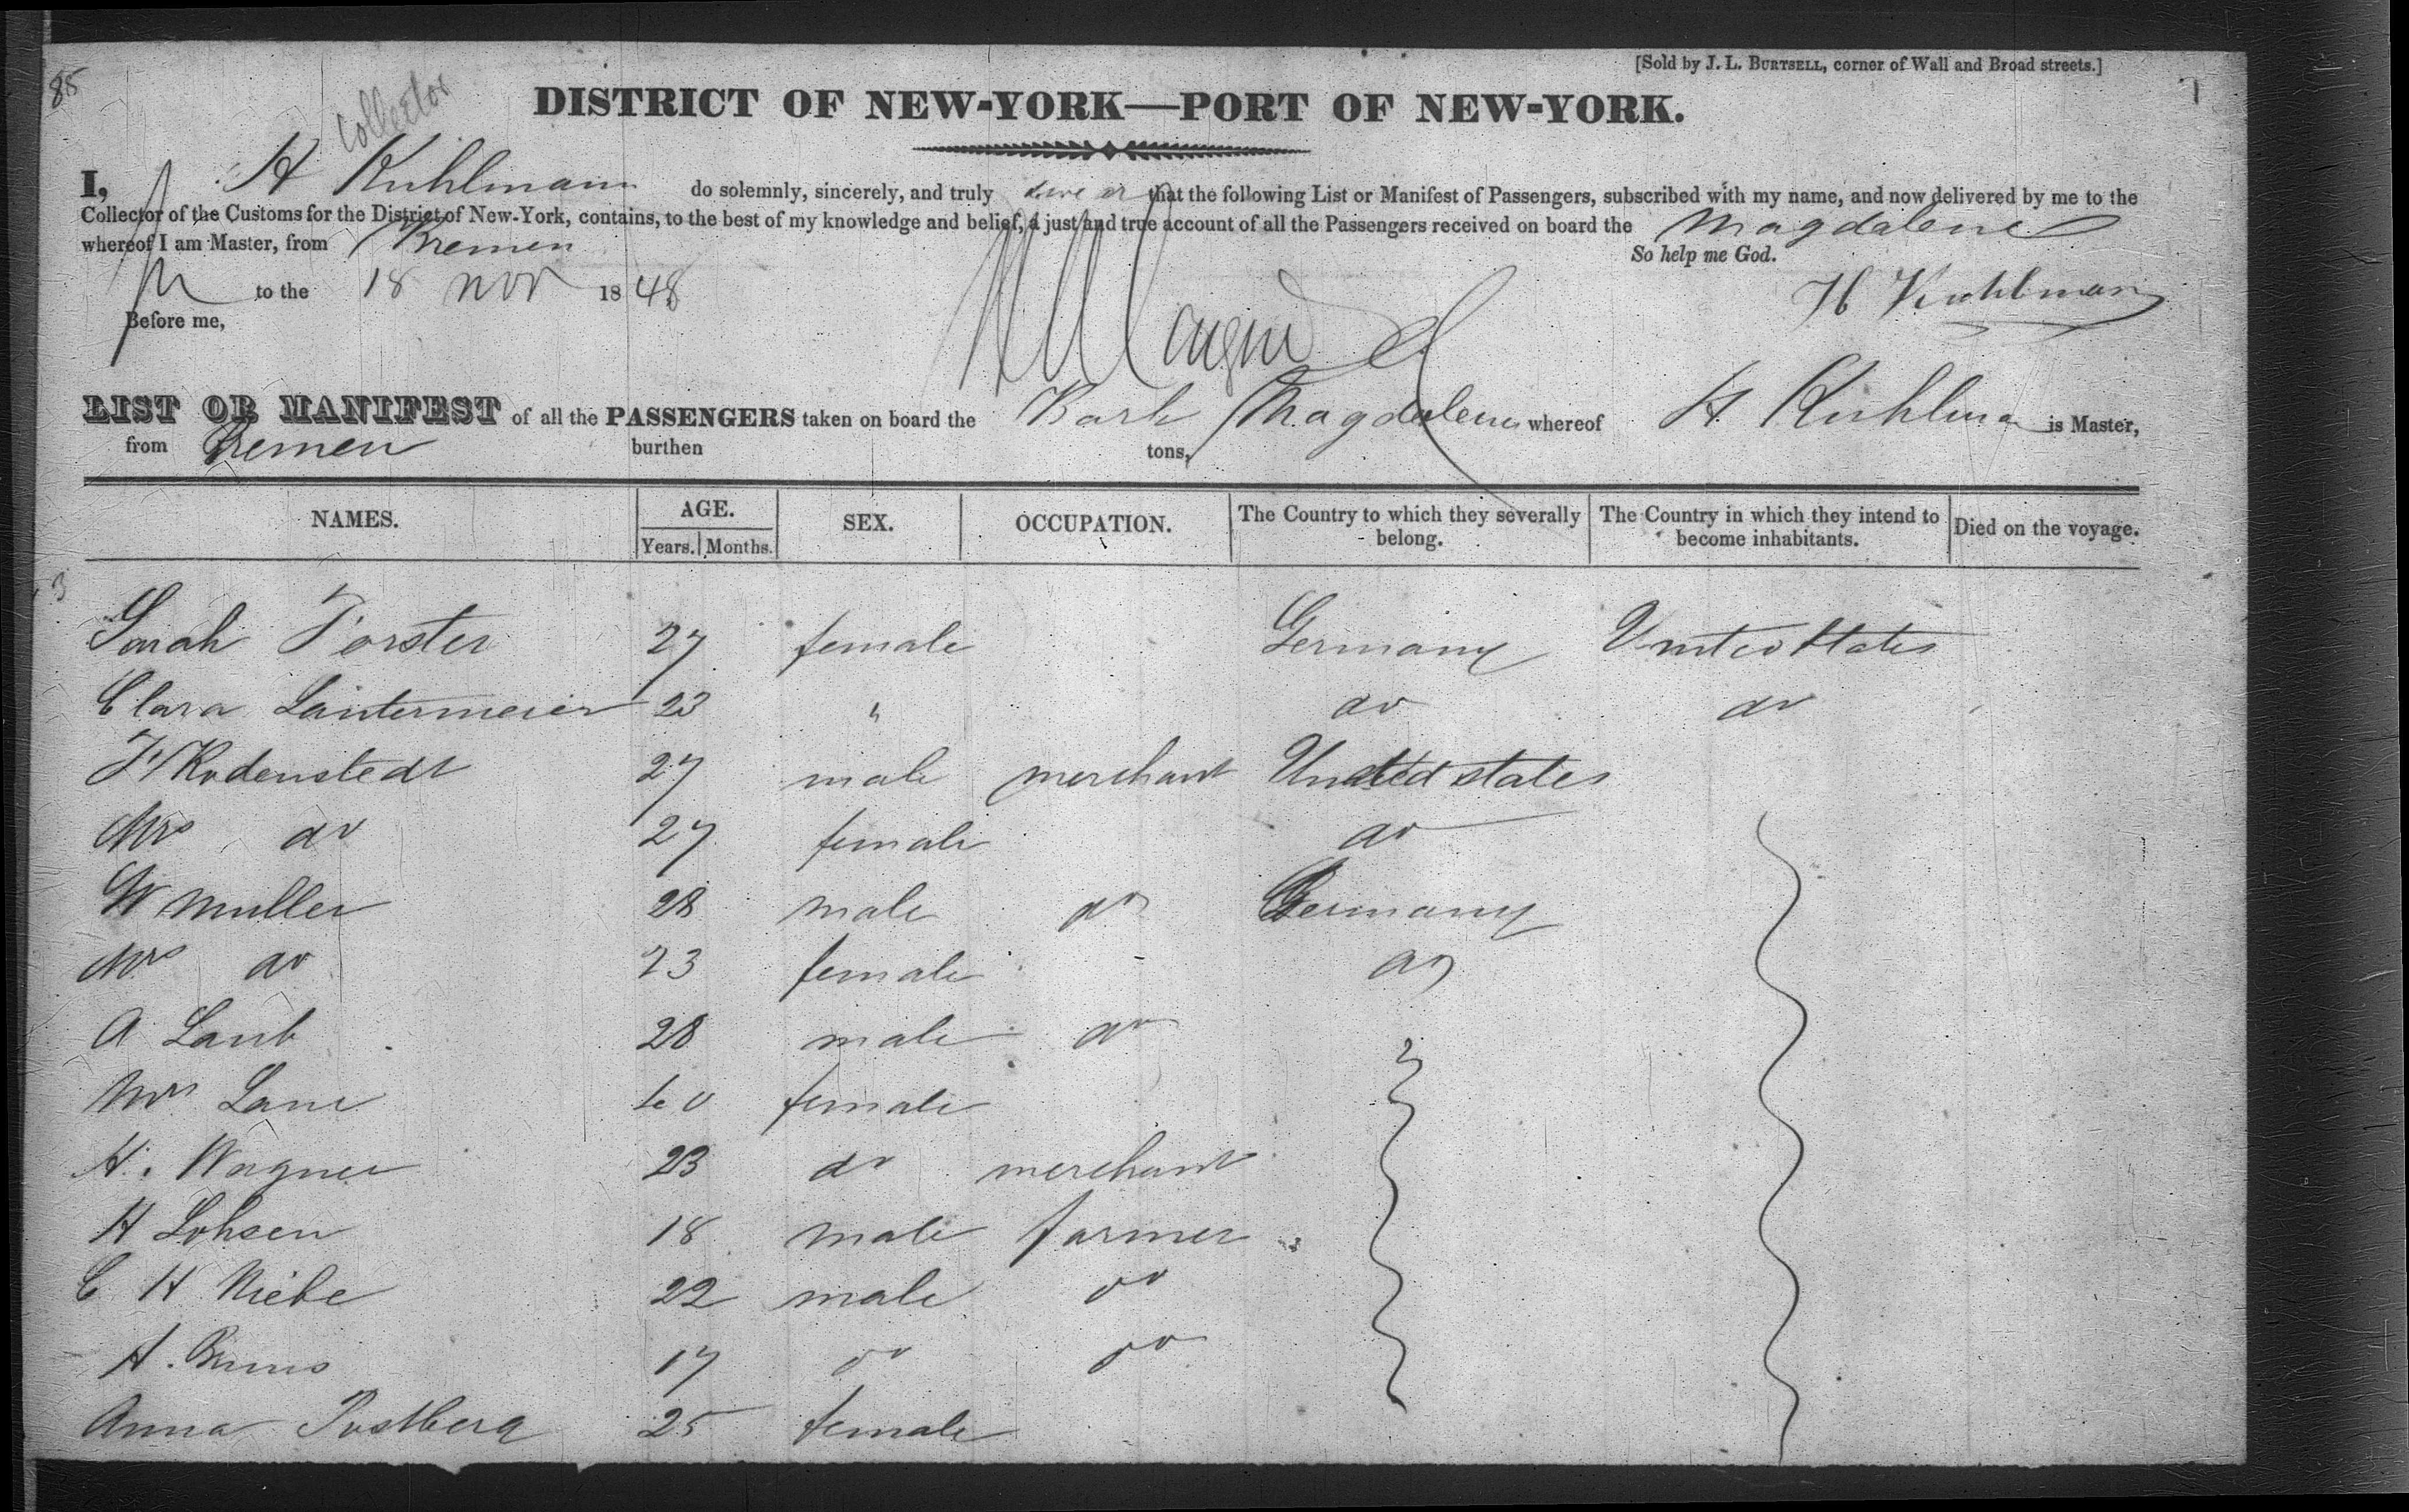 85
Collector
[Sold by J. L. BURTSELL, corner of Wall and Broad streets.]
1
DISTRICT OF NEW-YORK—PORT OF NEW-YORK.
I, H Kuhlmann do solemnly, sincerely, and truly that the following List or Manifest of Passengers, subscribed with my name, and now delivered by me to the
Collector of the Customs for the District of New-York, contains, to the best of my knowledge and belief, a just and true account of all the Passengers received on board the Magdalene
whereof I am Master, from Bremen
So help me God.
to the 18 Nov 1848
H Kuhlmann
Before me,
LIST OR MANIFEST of all the PASSENGERS taken on board the Bark Magdalene whereof H Kuhlman is Master,
from Bremen burthen tons,
NAMES. AGE. SEX. OCCUPATION. The Country to which they severally belong. The Country in which they intend to become inhabitants. Died on the voyage.
Years. Months.
3
Sarah Forster 27 female Germany United States
Clara Lantermeier 23 " do do
F Rodenstedt 27 male merchant United states
Mrs do 27 female do
W Muller 28 male do Germany
Mrs do 23 female do
A Laub 28 male do
Mrs Lane 40 female
H. Wagner 23 do merchant
H Lohsen 18 male farmer
C H Niebe 22 male do
H. Bruns 17 do do
Anna Postberg 25 female